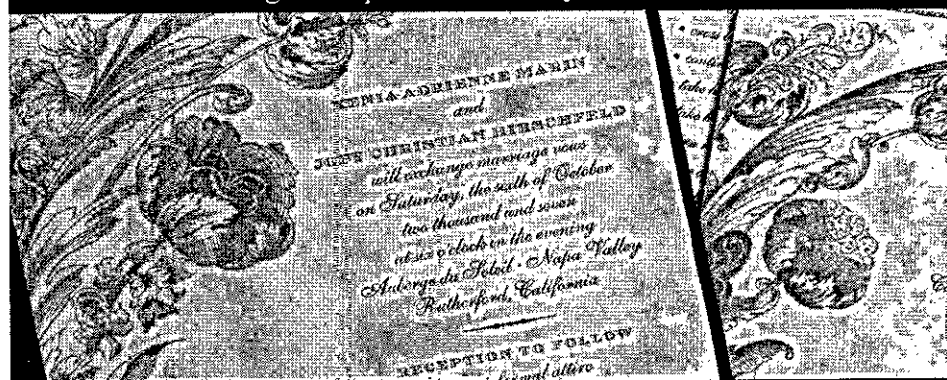 XENIA ADRIENNE MABIN
and
JEFF CHRISTIAN HIRSCHFELD
will exchange marriage vows
on Saturday, the sixth of October
two thousand and seven
at six o'clock in the evening
Auberge du Soleil · Napa Valley
Rutherford, California
RECEPTION TO FOLLOW
formal attire
• cross
take